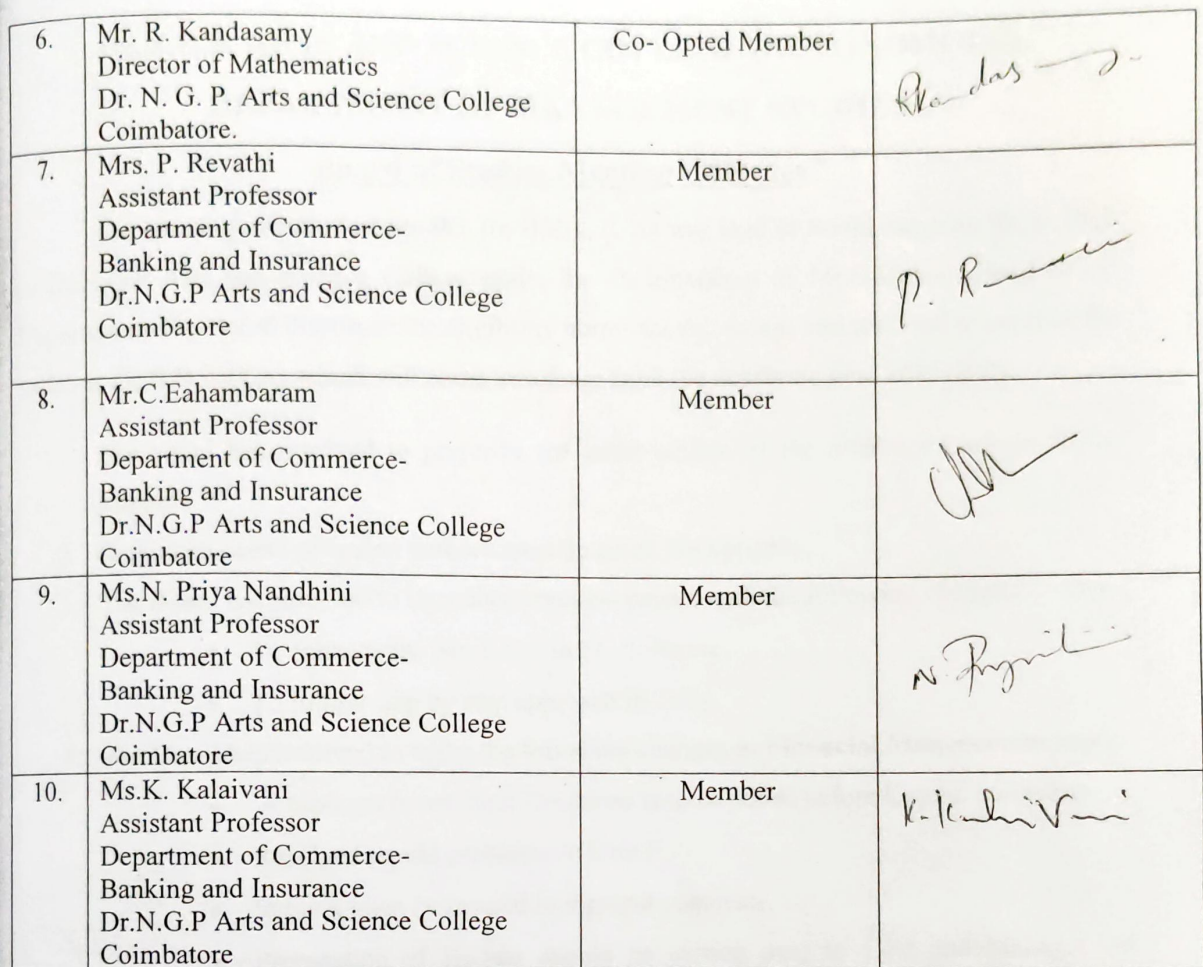 6. Mr. R. Kandasamy Co- Opted Member
Director of Mathematics
Dr. N. G. P. Arts and Science College
Coimbatore.
7. Mrs. P. Revathi Member
Assistant Professor
Department of Commerce-
Banking and Insurance
Dr.N.G.P Arts and Science College
Coimbatore
P. R
8. Mr.C.Eahambaram Member
Assistant Professor
Department of Commerce-
Banking and Insurance
Dr.N.G.P Arts and Science College
Coimbatore
9. Ms.N. Priya Nandhini Member
Assistant Professor
Department of Commerce-
Banking and Insurance
Dr.N.G.P Arts and Science College
Coimbatore
10. Ms.K. Kalaivani Member
Assistant Professor
Department of Commerce-
Banking and Insurance
Dr.N.G.P Arts and Science College
Coimbatore